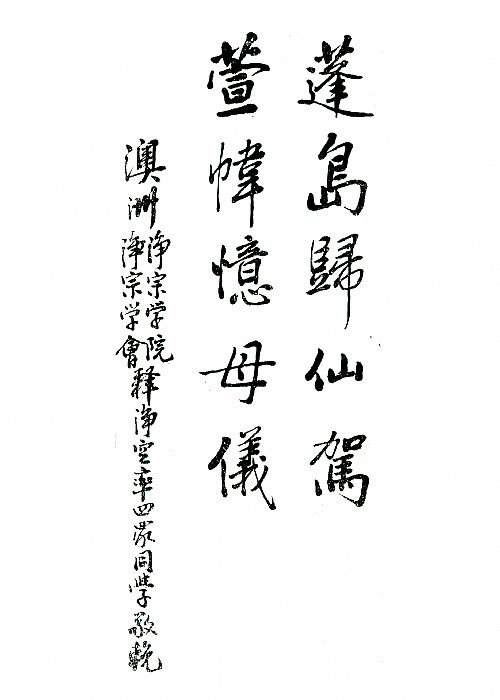 蓬島歸仙駕
萱幃憶母儀
澳洲淨宗学院淨宗学會釋淨空率四眾同學敬輓